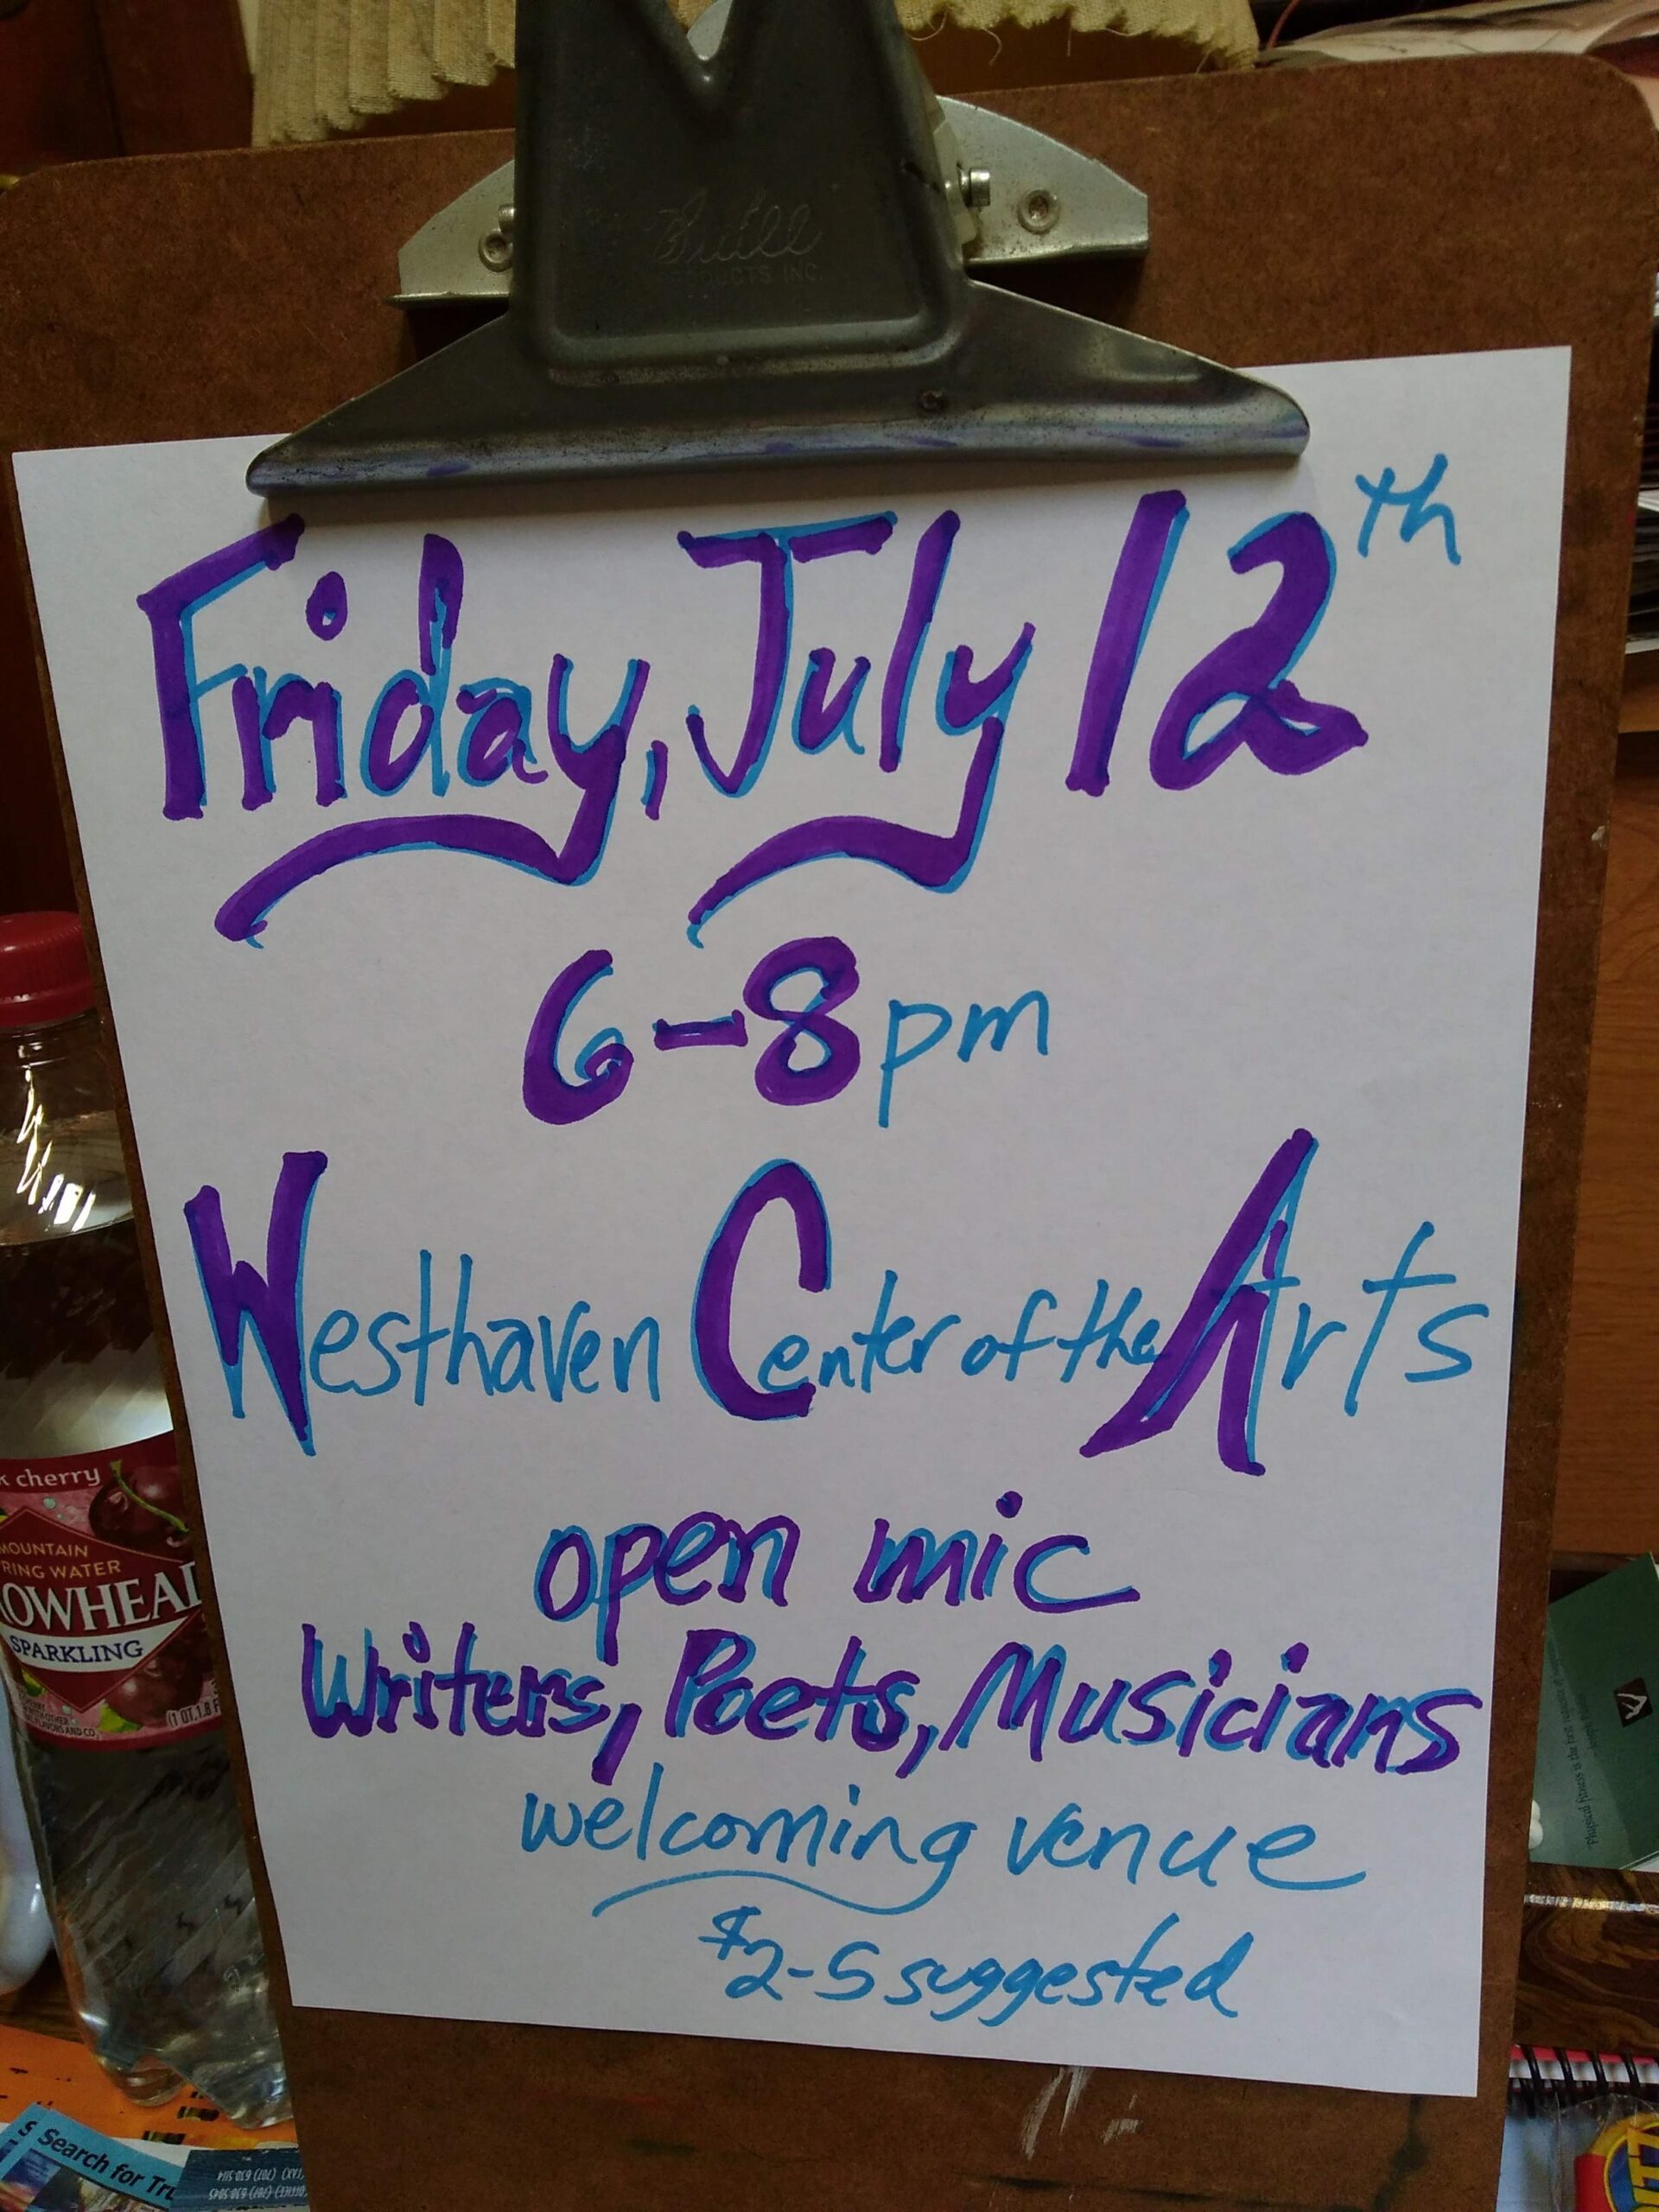 Buell
PRODUCTS INC.
Friday, July 12th
6-8pm
Westhaven Center of the Arts
open mic
Writers, Poets, Musicians
welcoming venue
$2-5 suggested
cherry
MOUNTAIN
RING WATER
OWHEA
SPARKLING
Search for Tr